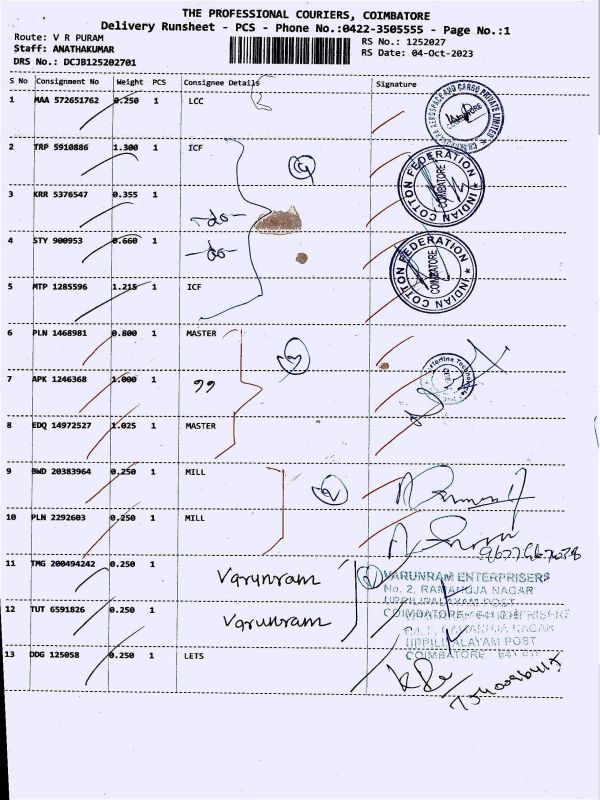 THE PROFESSIONAL COURIERS, COIMBATORE
Delivery Runsheet - PCS - Phone No.:0422-3505555 - Page No.:1
Route: V R PURAM
RS No.: 1252027
Staff: ANATHAKUMAR
RS Date: 04-Oct-2023
DRS No.: DCJB125202701
S No Consignment No Weight PCS Consignee Details Signature
1 MAA 572651762 0.250 1 LCC
2 TRP 5910886 1.300 1 ICF
INDIAN COTTON FEDERATION COIMBATORE
3 KRR 5376547 0.355 1 -do-
4 STY 900953 0.660 1 -do-
INDIAN COTTON FEDERATION COIMBATORE
5 MTP 1285596 1.215 1 ICF
6 PLN 1468981 0.800 1 MASTER
7 APK 1246368 1.000 1 "
8 EDQ 14972527 1.025 1 MASTER
9 BWD 20383964 0.250 1 MILL
10 PLN 2292603 0.250 1 MILL
11 TMG 200494242 0.250 1 Varunram
VARUNRAM ENTERPRISERS
No. 2, RAMANUJA NAGAR
UPPILIPALAYAM POST
COIMBATORE
12 TUT 6591826 0.250 1 Varunram
RAMANUJA NAGAR
UPPILIPALAYAM POST
COIMBATORE
13 DDG 125058 0.250 1 LETS